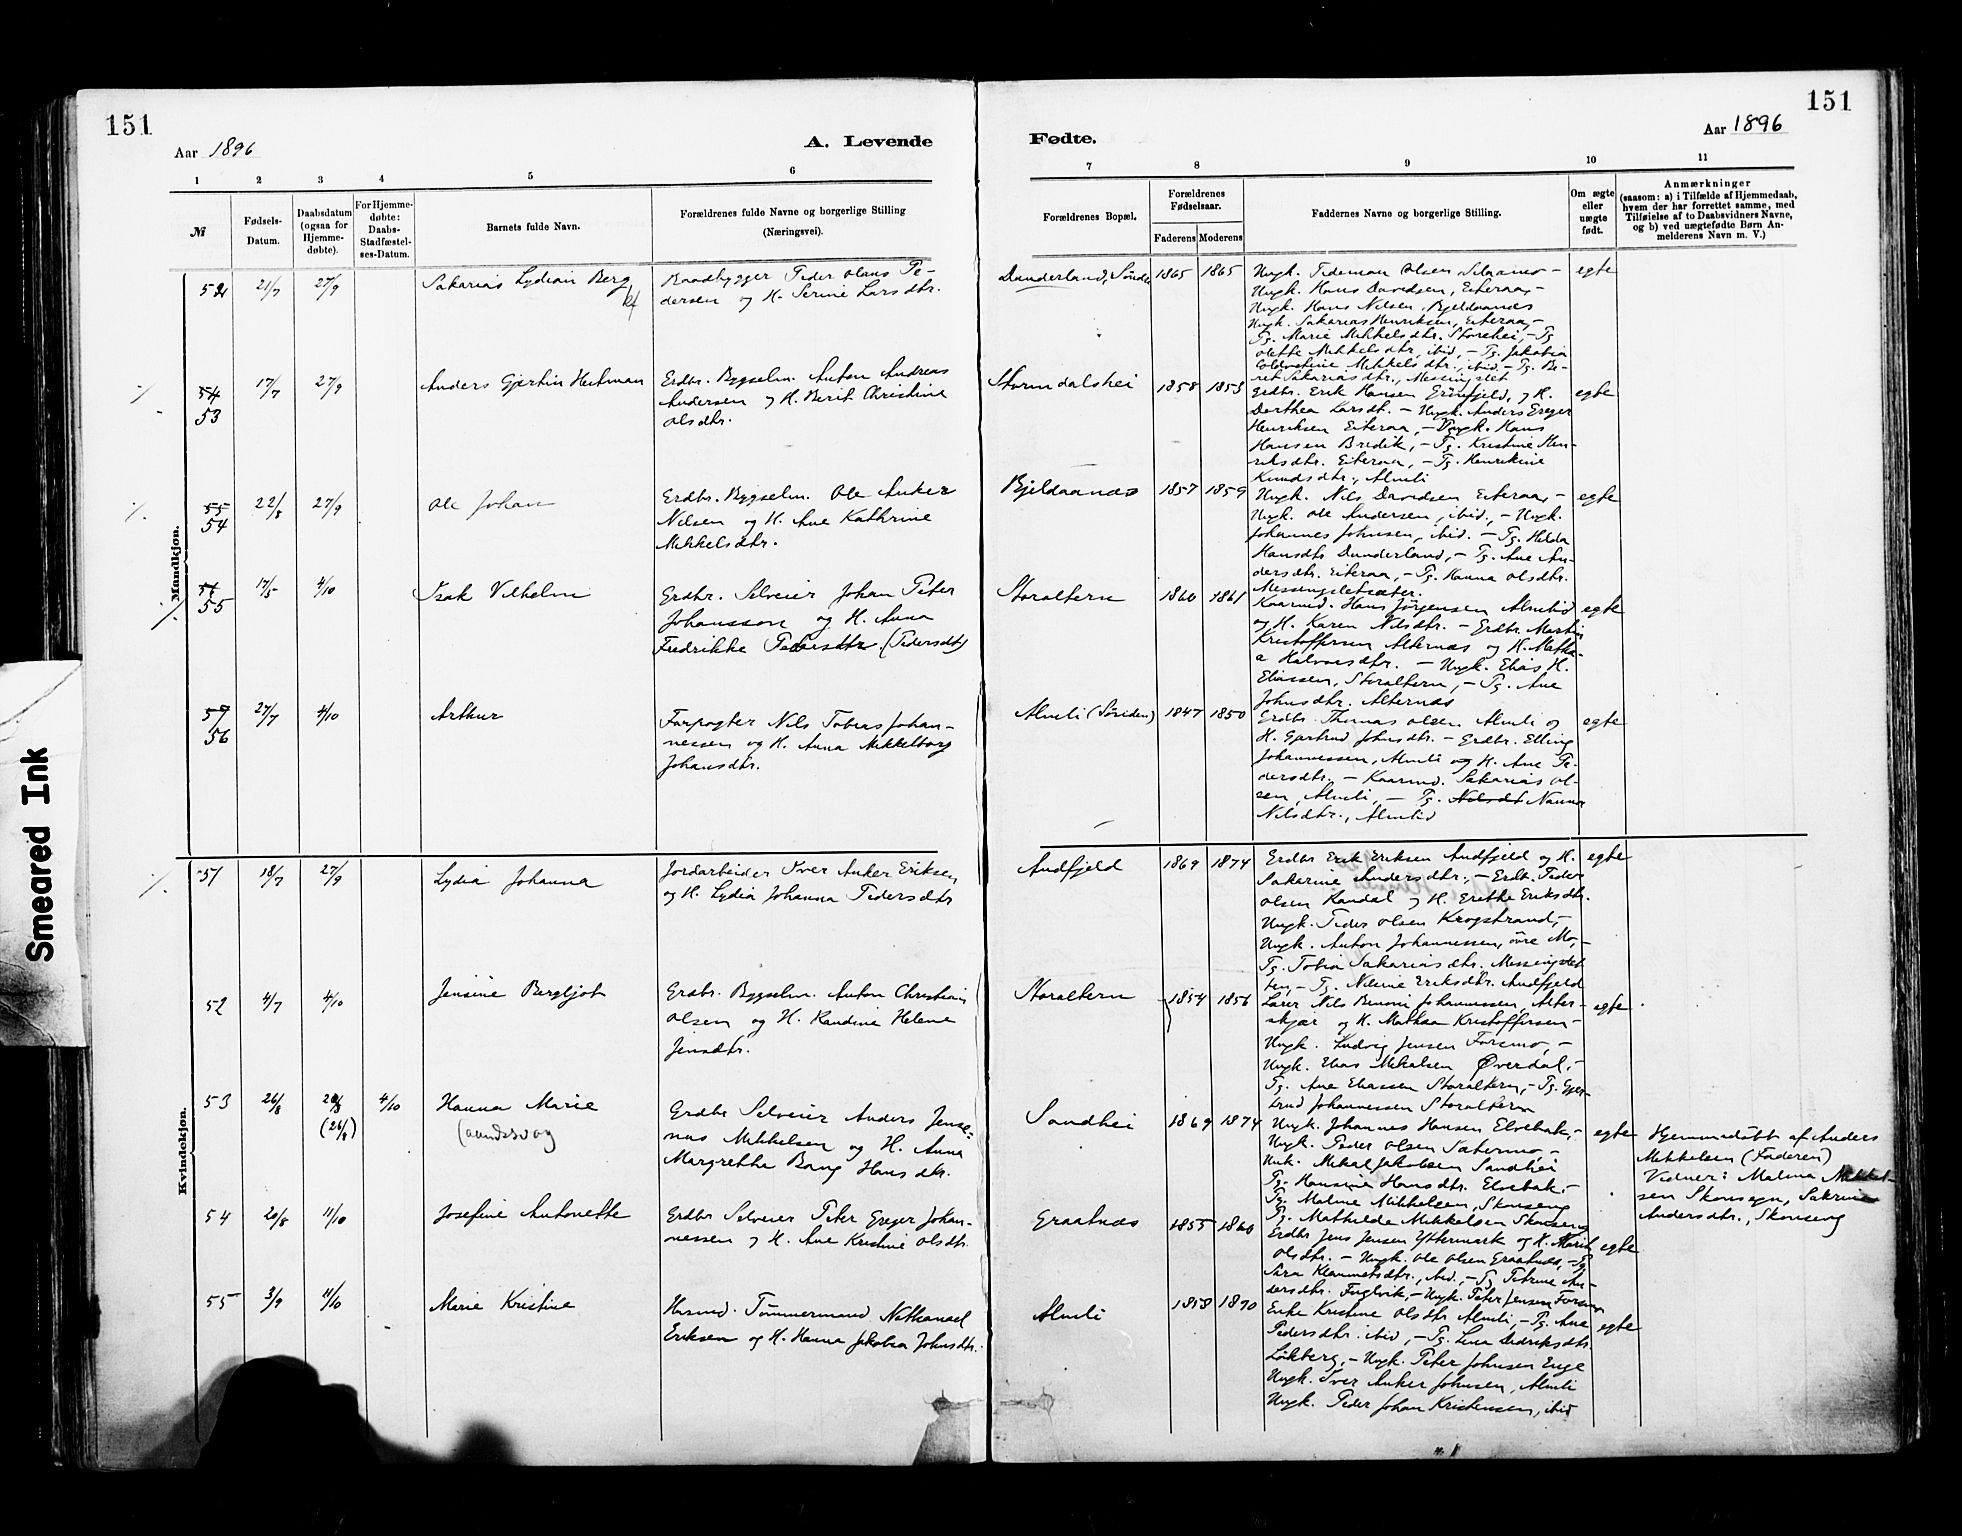 151
151
Aar 1896
A. Levende
Fødte.
Aar 1896
1 2 3 4 5 6 7 8 9 10 11
№
Fødsels-
Datum.
Daabsdatum
(ogsaa for
Hjemme-
døbte).
For Hjemme-
døbte:
Daabs-
Stadfæstel-
ses-Datum.
Barnets fulde Navn.
Forældrenes fulde Navne og borgerlige Stilling
(Næringsvei).
Forældrenes Bopæl.
Forældrenes
Fødselsaar.
Faderens Moderens
Faddernes Navne og borgerlige Stilling.
Om ægte
eller
uægte
født.
Anmærkninger
(saasom: a) i Tilfælde af Hjemmedaab,
hvem der har forrettet samme, med
Tilføielse af to Daabsvidners Navne,
og b) ved uægtefødte Børn An-
melderens Navn m. V.)
Mandkjøn.
52 21/7 27/9
Sakarias Lydian Berg
Peder Olaus Pe-
dersen og H. Serine Larsdtr.
Dunderland,
1865 1865
Ungk. Tideman Olsen
Ungk. Hans Davidsen, Eiteraa, -
Ungk. Hans Nilsen, Bjeldaanes
Ungk. Sakarias Henriksen, Eiteraa, -
Pg. Marie Mikkelsdtr. Storehei, - Pg
Olette Mikkelsdtr, ibid, - Pg. Jakobia
Mikkelsdtr., ibid. - Pg. Be-
ret Sakariasdtr., Messingslet
egte
54 17/7 27/9
53
Anders Gjertin Heitman
Erdbr. Bygselm. Anton Andreas
Andersen og H. Berit Christine
Olsdtr.
Stormdalshei
1858 1853
Erdbr. Erik Hansen Grønfjeld, og H.
Dorthea Larsdt. - Ungk. Anders Greger
Henriksen Eiteraa, - Ungk. Hans
Hansen Bredik, - Pg. Kristine Hen-
riksdtr. Eiteraa, - Pg. Henrikine
Knudsdtr., Almli
egte
55 22/8 27/9
54
Ole Johan
Erdbr. Bygselm. Ole Anker
Nilsen og H. Ane Kathrine
Mikkelsdtr.
Bjeldaanes
1857 1859
Ungk. Nils Davidsen Eiteraa, -
Ungk. Ole Andersen, ibid., - Ungk.
Johannes Johnsen, ibid. - Pg. Hilda
Hansdtr Dunderland, - Pg. Ane An-
dersdtr. Eiteraa, - Pg. Hanna Olsdtr.
Messingsletsæter.
egte
56 17/5 4/10
55
Isak Vilhelm
Erdbr. Selveier Johan Peter
Johansson og H. Anna
Fredrikke Petersdtr. (Pedersdtr)
Storaltern
1860 1861
Kaarmd. Hans Jørgensen Almlid
og H. Karen Nilsdtr. - Erdbr. Martin
Kristoffersen Alternæs og H. Matha-
a Halvorsdtr. - Ungk. Elias H.
Eliassen, Storaltern, - Pg. Ane
Johnsdtr. Alternæs
egte
57 27/7 4/10
56
Arthur
Forpagter Nils Tobias Johan-
nessen og H. Anna Mikkelborg
Johansdtr.
Almli (Søsiden)
1847 1850
Erdbr. Thomas Olsen Almli og
H. Gjertrud Johnsdtr. - Erdbr. Elling
Johannessen, Almli og H. Ane Pe-
dersdtr. - Kaarmd. Sakarias Ol-
sen, Almli, - Pg. Nilsdt Nanna
Nilsdtr., Almlid
egte
Kvindekjøn.
51 18/7 27/9
Lydia Johanna
Jordarbeider Iver Anker Eriksen
og H. Lydia Johanna Pedersdtr
Andfjeld
1869 1874
Erdbr Erik Eriksen Andfjeld og H.
Sakarine Andersdtr., - Erdb. Peder
Olsen Randal og H. Grethe Eriksdtr.
Ungk. Peder Olsen Krogstrand, -
Ungk. Anton Johannessen, øvre Mo, -
Pg. Tobia Sakariasdtr. Messingslet
ten, - Pg. Nilsine Eriksdtr. Andfjeld
egte
52 4/7 4/10
Jensine Bergljot
Erdbr. Bygselm. Anton Christian
Olsen og H. Randine Helene
Jensdtr.
Storaltern
1854 1856
Lærer Nils Benoni Johannessen, Alter-
skjær og H. Mathea Kristoffersen -
Ungk. Ludvig Jensen Forsmo, -
Ungk. Elias Mikalsen Øverdal, -
Pg. Ane Eliassen Storaltern, - Pg. Gjer-
trud Johannessen Storaltern
egte
53 26/8 (26/8) 4/10
Hanna Marie
Erdbr Selveier Anders Jense-
nius Mikkelsen og H. Anna
Margrethe Bang Hansdtr.
Sandhei
1869 1874
Ungk. Johannes Hansen Elvebak, -
Ungk. Peder Olsen Sætermo, -
Unk. Mikal Jakobsen Sandhei
Pg. Hansine Hansdtr. Elvebak, -
Pg. Malene Mikkelsen, Skonseng
Pg. Mathilde Mikkelsen Skonseng
egte
Hjemmedøbt af Anders
Mikkelsen (Faderen)
Vidner: Malena Mikkel-
sen Skonseng, Sakrine
Andersdtr., Skonseng
54 20/8 11/10
Josefine Antonette
Erdbr Selveier Peter Greger Johan-
nessen og H. Ane Kristine Olsdtr.
Graatnæs
1855 1860
Erdbr Jens Jensen Yttermark og H. Marit
Olsdtr. - Ungk. Ole Olsen Graatnæs, - Pg
Sara Klemmetsdtr., ibid., - Pg Petrine An-
dersdtr. Fuglvik, - Ungk. Peter Jensen Forsmo
egte
55 3/9 11/10
Marie Kristine
Husmd. Tømmermand Nathanael
Eriksen og H. Hanna Jakobea Johnsdtr.
Almli
1858 1870
Enke Kristine Olsdtr Almli, - Pg. Ane
Pedersdtr. ibid, - Pg. Lina Didriksdtr.
Løkberg, - Ungk. Peter Johnsen Enge
Ungk. Iver Anker Johnsen, Almli
Ungk. Peder Johan Kristensen, ibid
egte
Smeared Ink